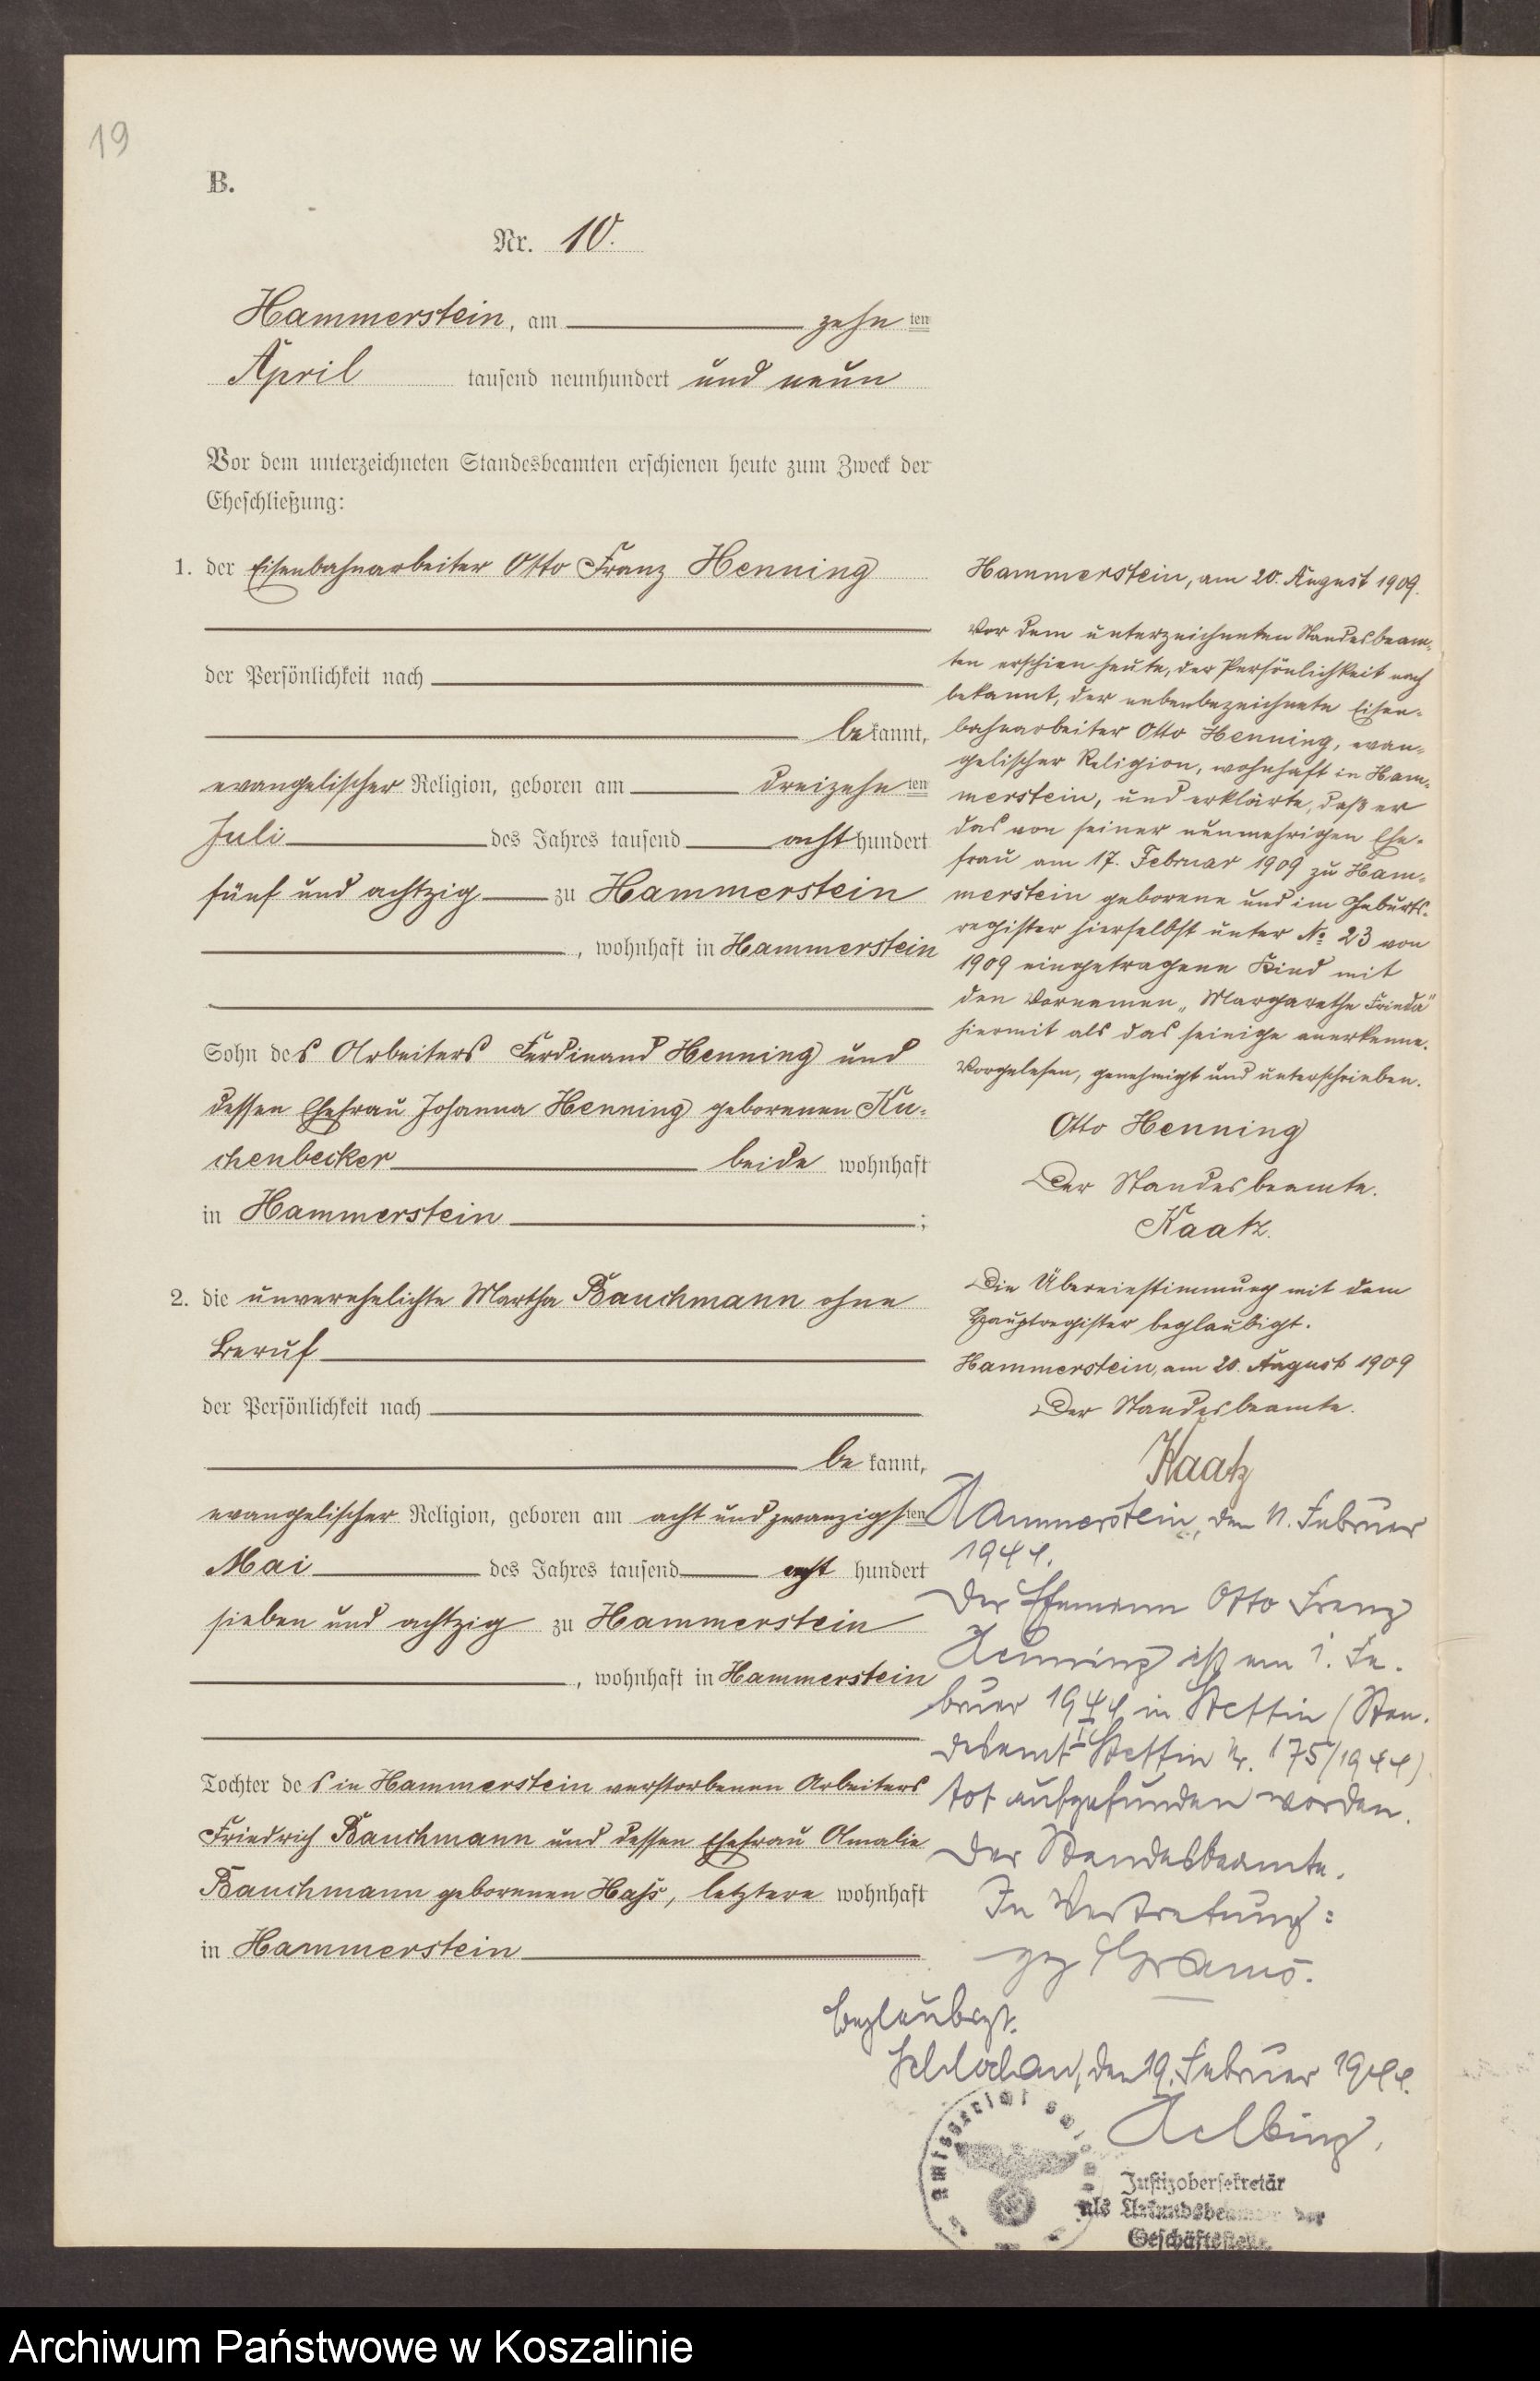 19
B.
Nr. 10.
Hammerstein, am zehn ten
April tausend neunhundert und neun
Vor dem unterzeichneten Standesbeamten erschienen heute zum Zweck der
Eheschließung:
1. der Eisenbahnarbeiter Otto Franz Henning
der Persönlichkeit nach
be kannt,
evangelischer Religion, geboren am dreizehn ten
Juli des Jahres tausend acht hundert
fünf und achtzig zu Hammerstein
, wohnhaft in Hammerstein
Sohn des Arbeiters Ferdinand Henning und
dessen Ehefrau Johanna Henning geborenen Ku-
chenbecker beide wohnhaft
in Hammerstein ;
2. die unverehelichte Martha Bauchmann ohne
Beruf
der Persönlichkeit nach
be kannt,
evangelischer Religion, geboren am acht und zwanzigsten
Mai des Jahres tausend acht hundert
sieben und achtzig zu Hammerstein
, wohnhaft in Hammerstein
Tochter des in Hammerstein verstorbenen Arbeiters
Friedrich Bauchmann und dessen Ehefrau Amalie
Bauchmann geborenen Haß, letztere wohnhaft
in Hammerstein
Hammerstein, am 20. August 1909.
Vor dem unterzeichneten Standesbeam-
ten erschien heute, der Persönlichkeit nach
bekannt, der nebenbezeichnete Eisen-
bahnarbeiter Otto Henning, evan-
gelischer Religion, wohnhaft in Ham-
merstein, und erklärte, daß er
das von seiner nunmehrigen Ehe-
frau am 17. Februar 1909 zu Ham-
merstein geborene und im Geburts-
register hierselbst unter No 23 von
1909 eingetragene Kind mit
den Vornamen „Margarethe Frieda"
hiermit als das seinige anerkenne.
Vorgelesen, genehmigt und unterschrieben.
Otto Henning
Der Standesbeamte.
Kaatz.
Die Übereinstimmung mit dem
Hauptregister beglaubigt.
Hammerstein, am 20. August 1909
Der Standesbeamte.
Kaatz
Hammerstein, den 11. Februar
1944.
Der Ehemann Otto Franz
Henning ist am 1. Fe-
bruar 1944 in Stettin (Stan-
desamt I Stettin Nr. 175/1944)
tot aufgefunden worden.
Der Standesbeamte.
In Vertretung:
gez Grams.
Beglaubigt.
Schlochau, den 19. Februar 1944.
Helbing,
Justizobersekretär
als Urkundsbeamter der
Geschäftsstelle
Archiwum Państwowe w Koszalinie